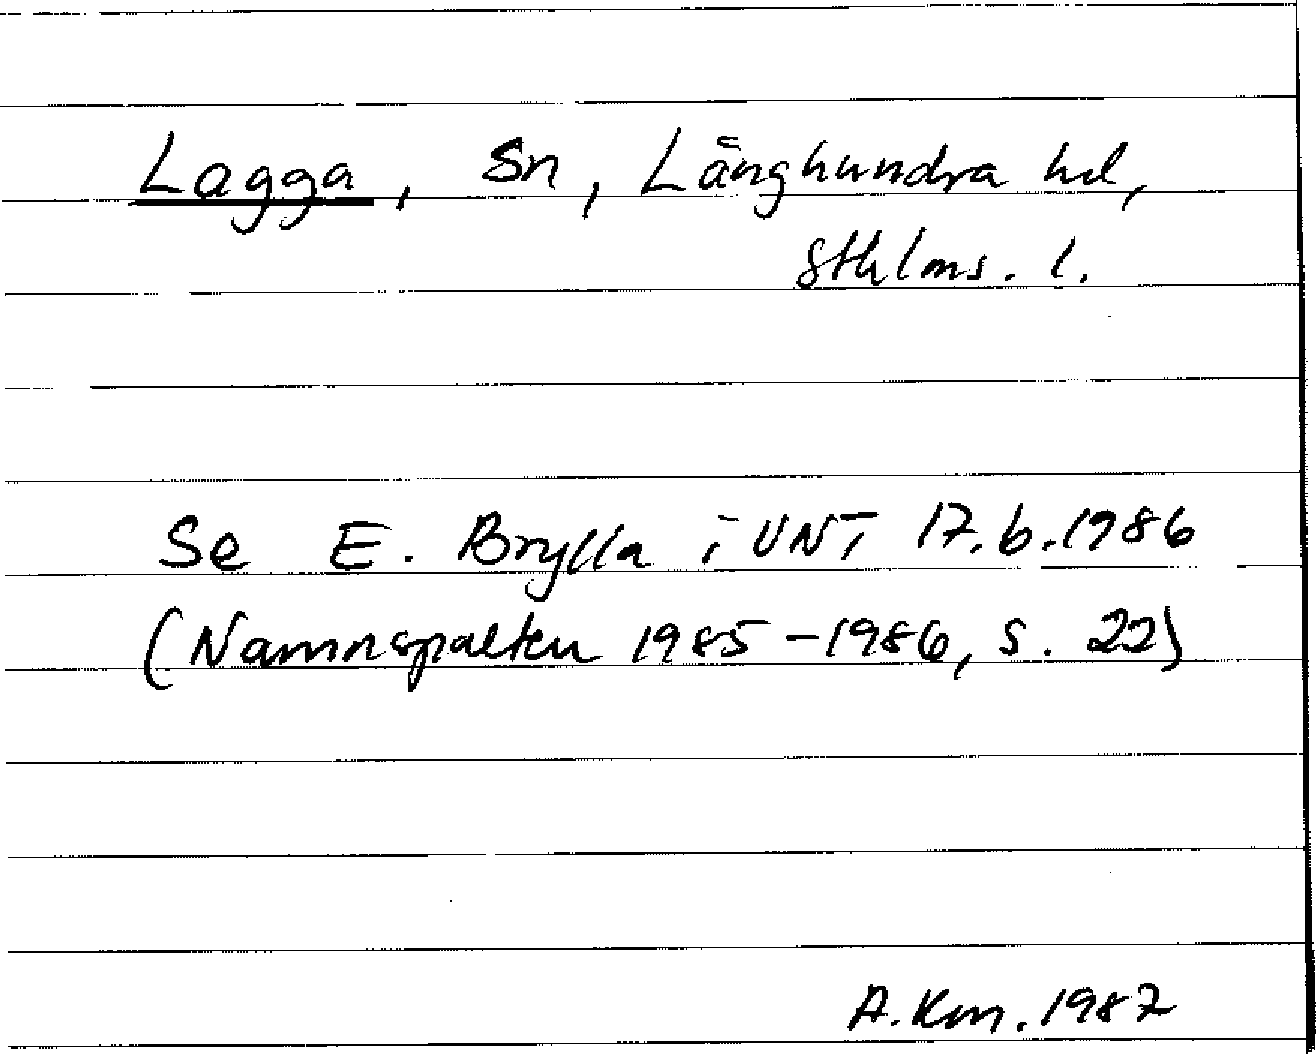 Lagga, Sn, Långhundra hd,
Sthlms. l.
Se E. Brylla i UNT 17.6.1986
(Namnspalten 1985-1986, s. 22)
A.Km. 1987